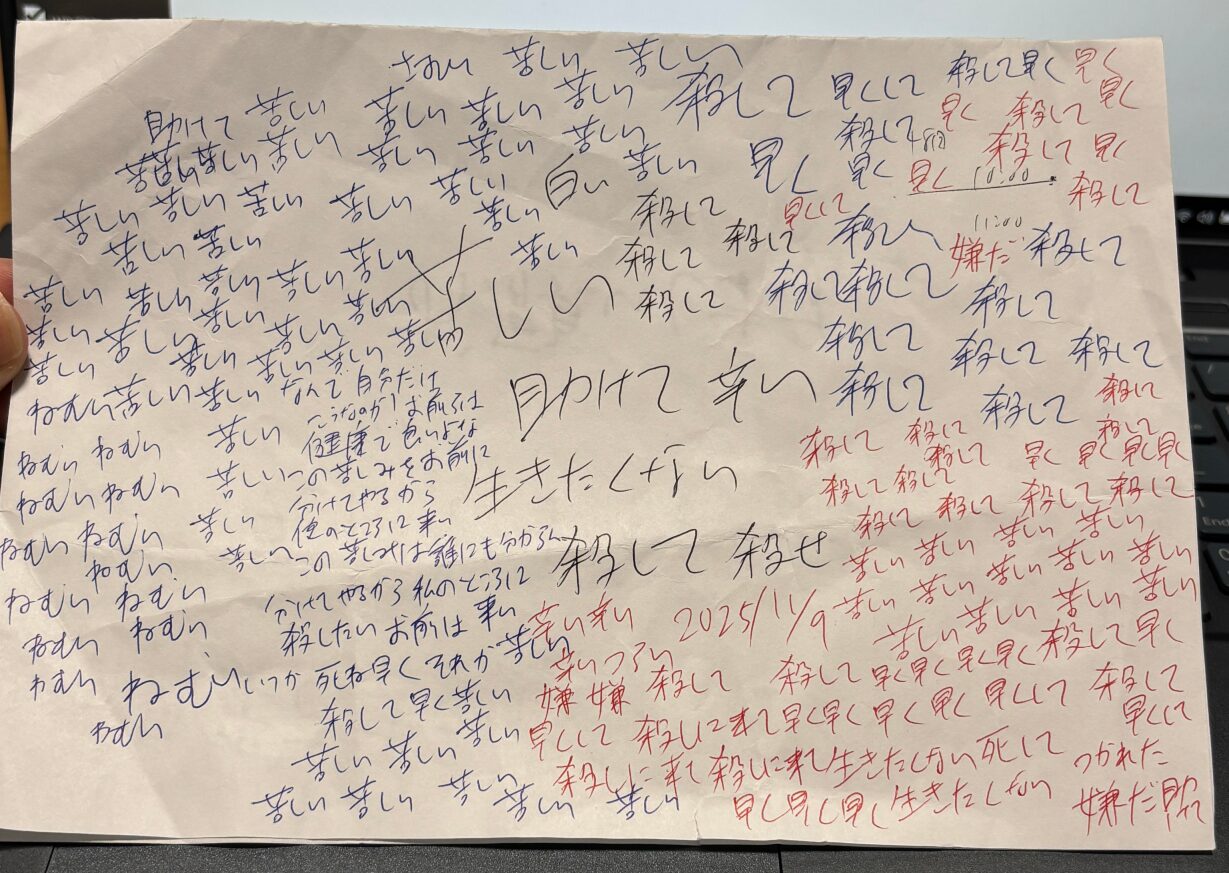 苦しい 苦しい
助けて 苦しい 苦しい 苦しい 苦しい 殺して 早くして 殺して早く 早く
苦しい 苦しい 苦しい 苦しい 苦しい 殺して 早く 殺して 早く
苦しい 苦しい 苦しい 苦しい 苦しい 苦しい 早く 早く 早く 10:00 殺して 早く
苦しい 苦しい 苦しい 殺して 早くして 殺して
苦しい 苦しい 苦しい 苦しい 殺して 殺して 11:00 嫌だ 殺して
苦しい 苦しい 苦しい 苦しい 殺して 殺して 殺して 殺して
苦しい 苦しい 苦しい 苦しい 苦しい 殺して 殺して 殺して
ねむい 苦しい 苦しい なんで自分だけ
こうなのか！お前らは
健康で良いよな
苦しい この苦しみをお前に
分けてやるから
俺のところに来い
苦しい この苦しみは誰にも分からん
分けてやるから 私のところに
殺したい お前は 来い
いつか 死ね 早く それが 苦しい
殺して 早く 苦しい
ねむい ねむい
ねむい ねむい
ねむい ねむい
ねむい
ねむい ねむい
ねむい ねむい
ねむい ねむい
ねむい
助けて 辛い
生きたくない
殺して 殺せ
2025/11/9
殺して 殺して 殺して
殺して 殺して 早く 早く 早く 早く
殺して 殺して 殺して 殺して
殺して 殺して
苦しい 苦しい 苦しい 苦しい
苦しい 苦しい 苦しい 苦しい 苦しい
苦しい 苦しい 苦しい 苦しい
辛い 辛い
辛い つらい
嫌 嫌 殺して 殺して 早く 早く 早く 早く 殺して 早く
早くして 殺しに来て 早く 早く 早く 早く 早くして 殺して
早くして
殺しに来て 殺しに来て 生きたくない 死して つかれた
早く 早く 早く 生きたくない 嫌だ
苦しい 苦しい 苦しい
苦しい 苦しい 苦しい 苦しい 苦しい